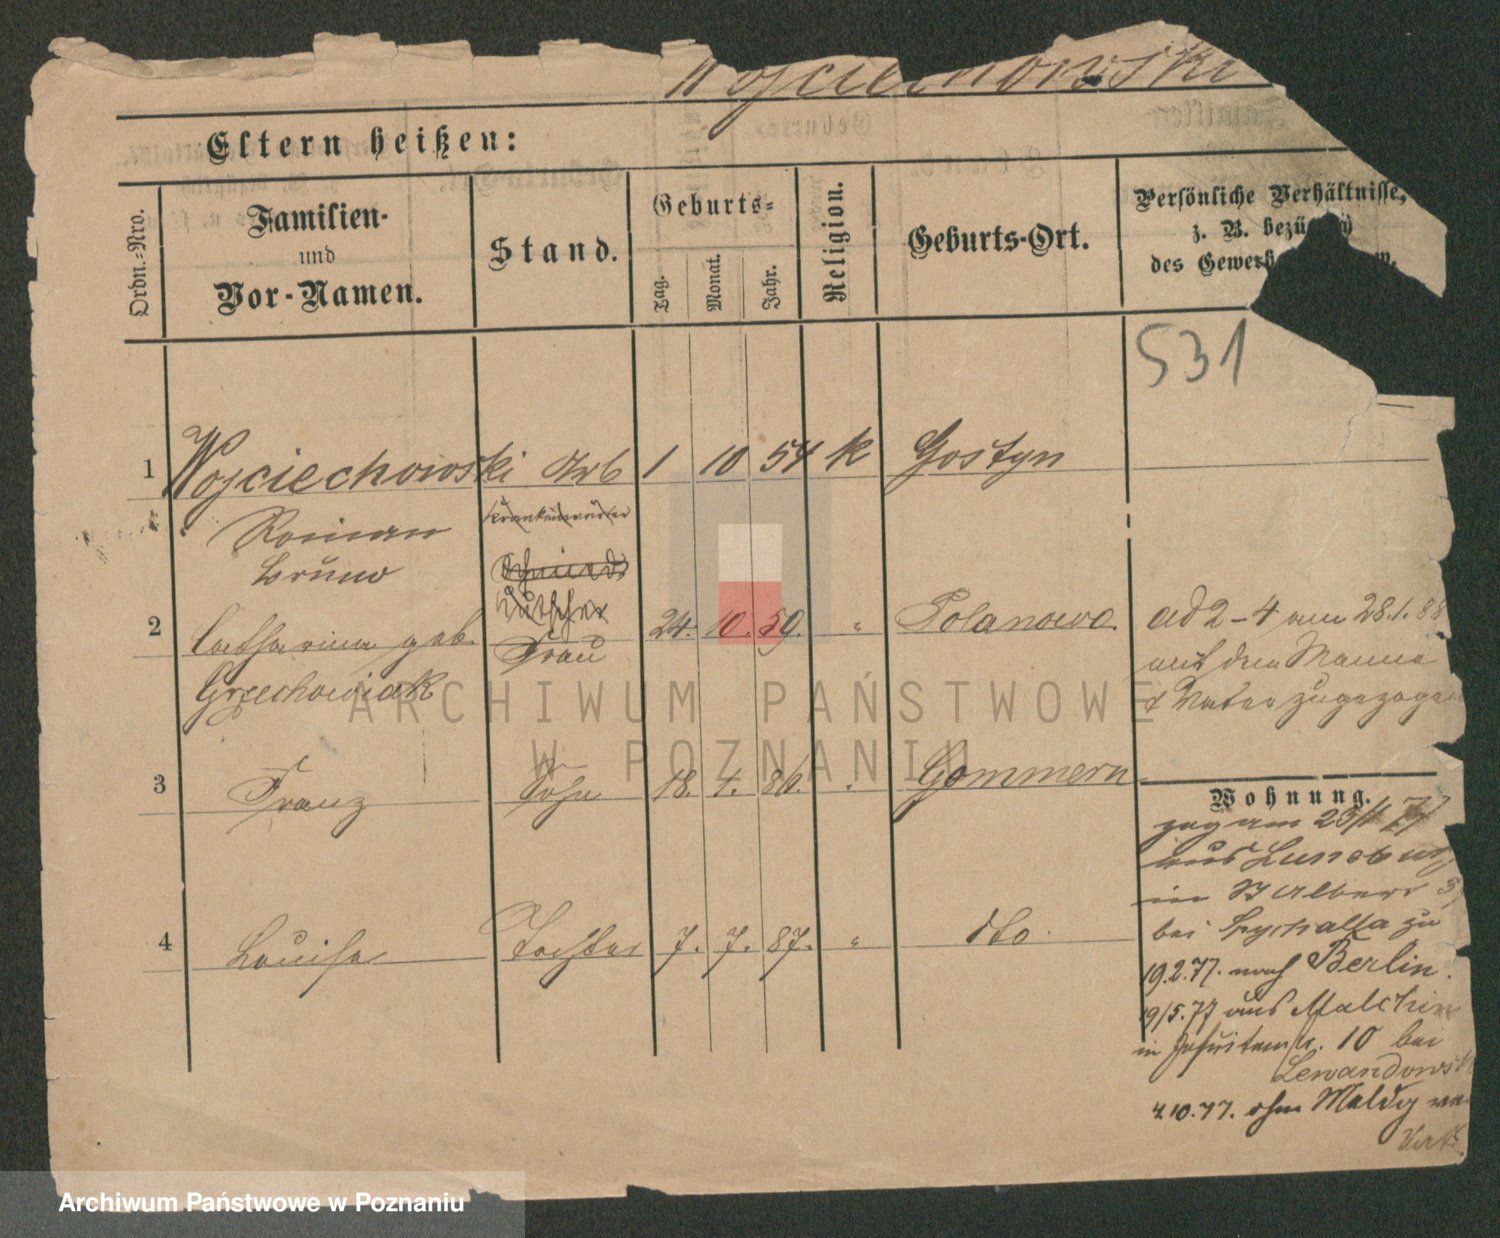 Wojciechowski
Eltern heißen:
Ordn.-Nro.
Familien-
und
Vor-Namen.
Stand.
Geburts-
Tag.
Monat.
Jahr.
Religion.
Geburts-Ort.
Persönliche Verhältnisse,
z. B. bezüglich
des Gewerbe
531
1 Wojciechowski Arb 1 10 54 K Gostyn
Roman Krankenwärter
Bruno Schmied
Kutscher
2 Catharina geb. Frau 24. 10. 59. " Polanowo.
Grzechowiak
ad 2-4 am 28.1.88
mit dem Manne
& Vater zugezogen
3 Franz Sohn 18. 4. 86. " Gommern
4 Louise Tochter 7. 7. 87. " dto.
Wohnung.
zog am 23/1 77
aus Luneburg
in St Albert 3
bei zu
19.2.77. nach Berlin.
19/5.77 aus Malchin
in Jesuitenstr. 10 bei
Lewandowsk
4.10.77. ohne Meldg
ARCHIWUM PAŃSTWOWE
W POZNANIU
Archiwum Państwowe w Poznaniu